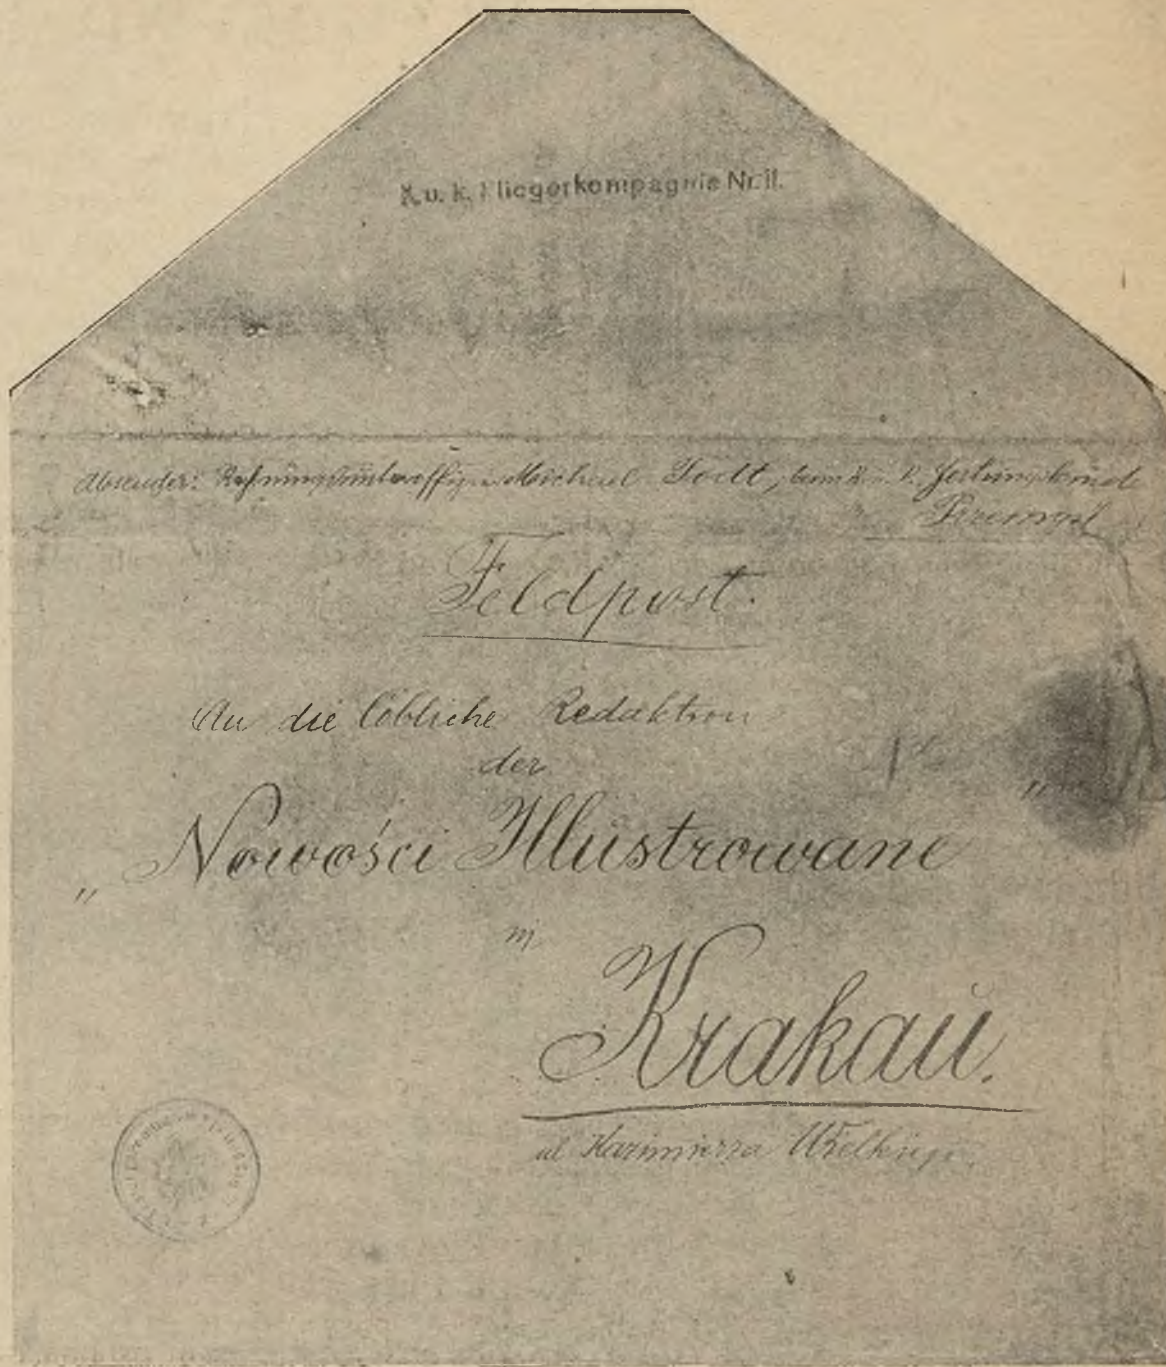 K. u. k. Fliegerkompagnie Nr. 11.
Absender: Rechnungsunteroffizier Michael
Przemysl
Feldpost.
An die löbliche Redaktion
der
„Nowości Illustrowane"
in
Krakau.
ul Kazimierza Wielkiego.